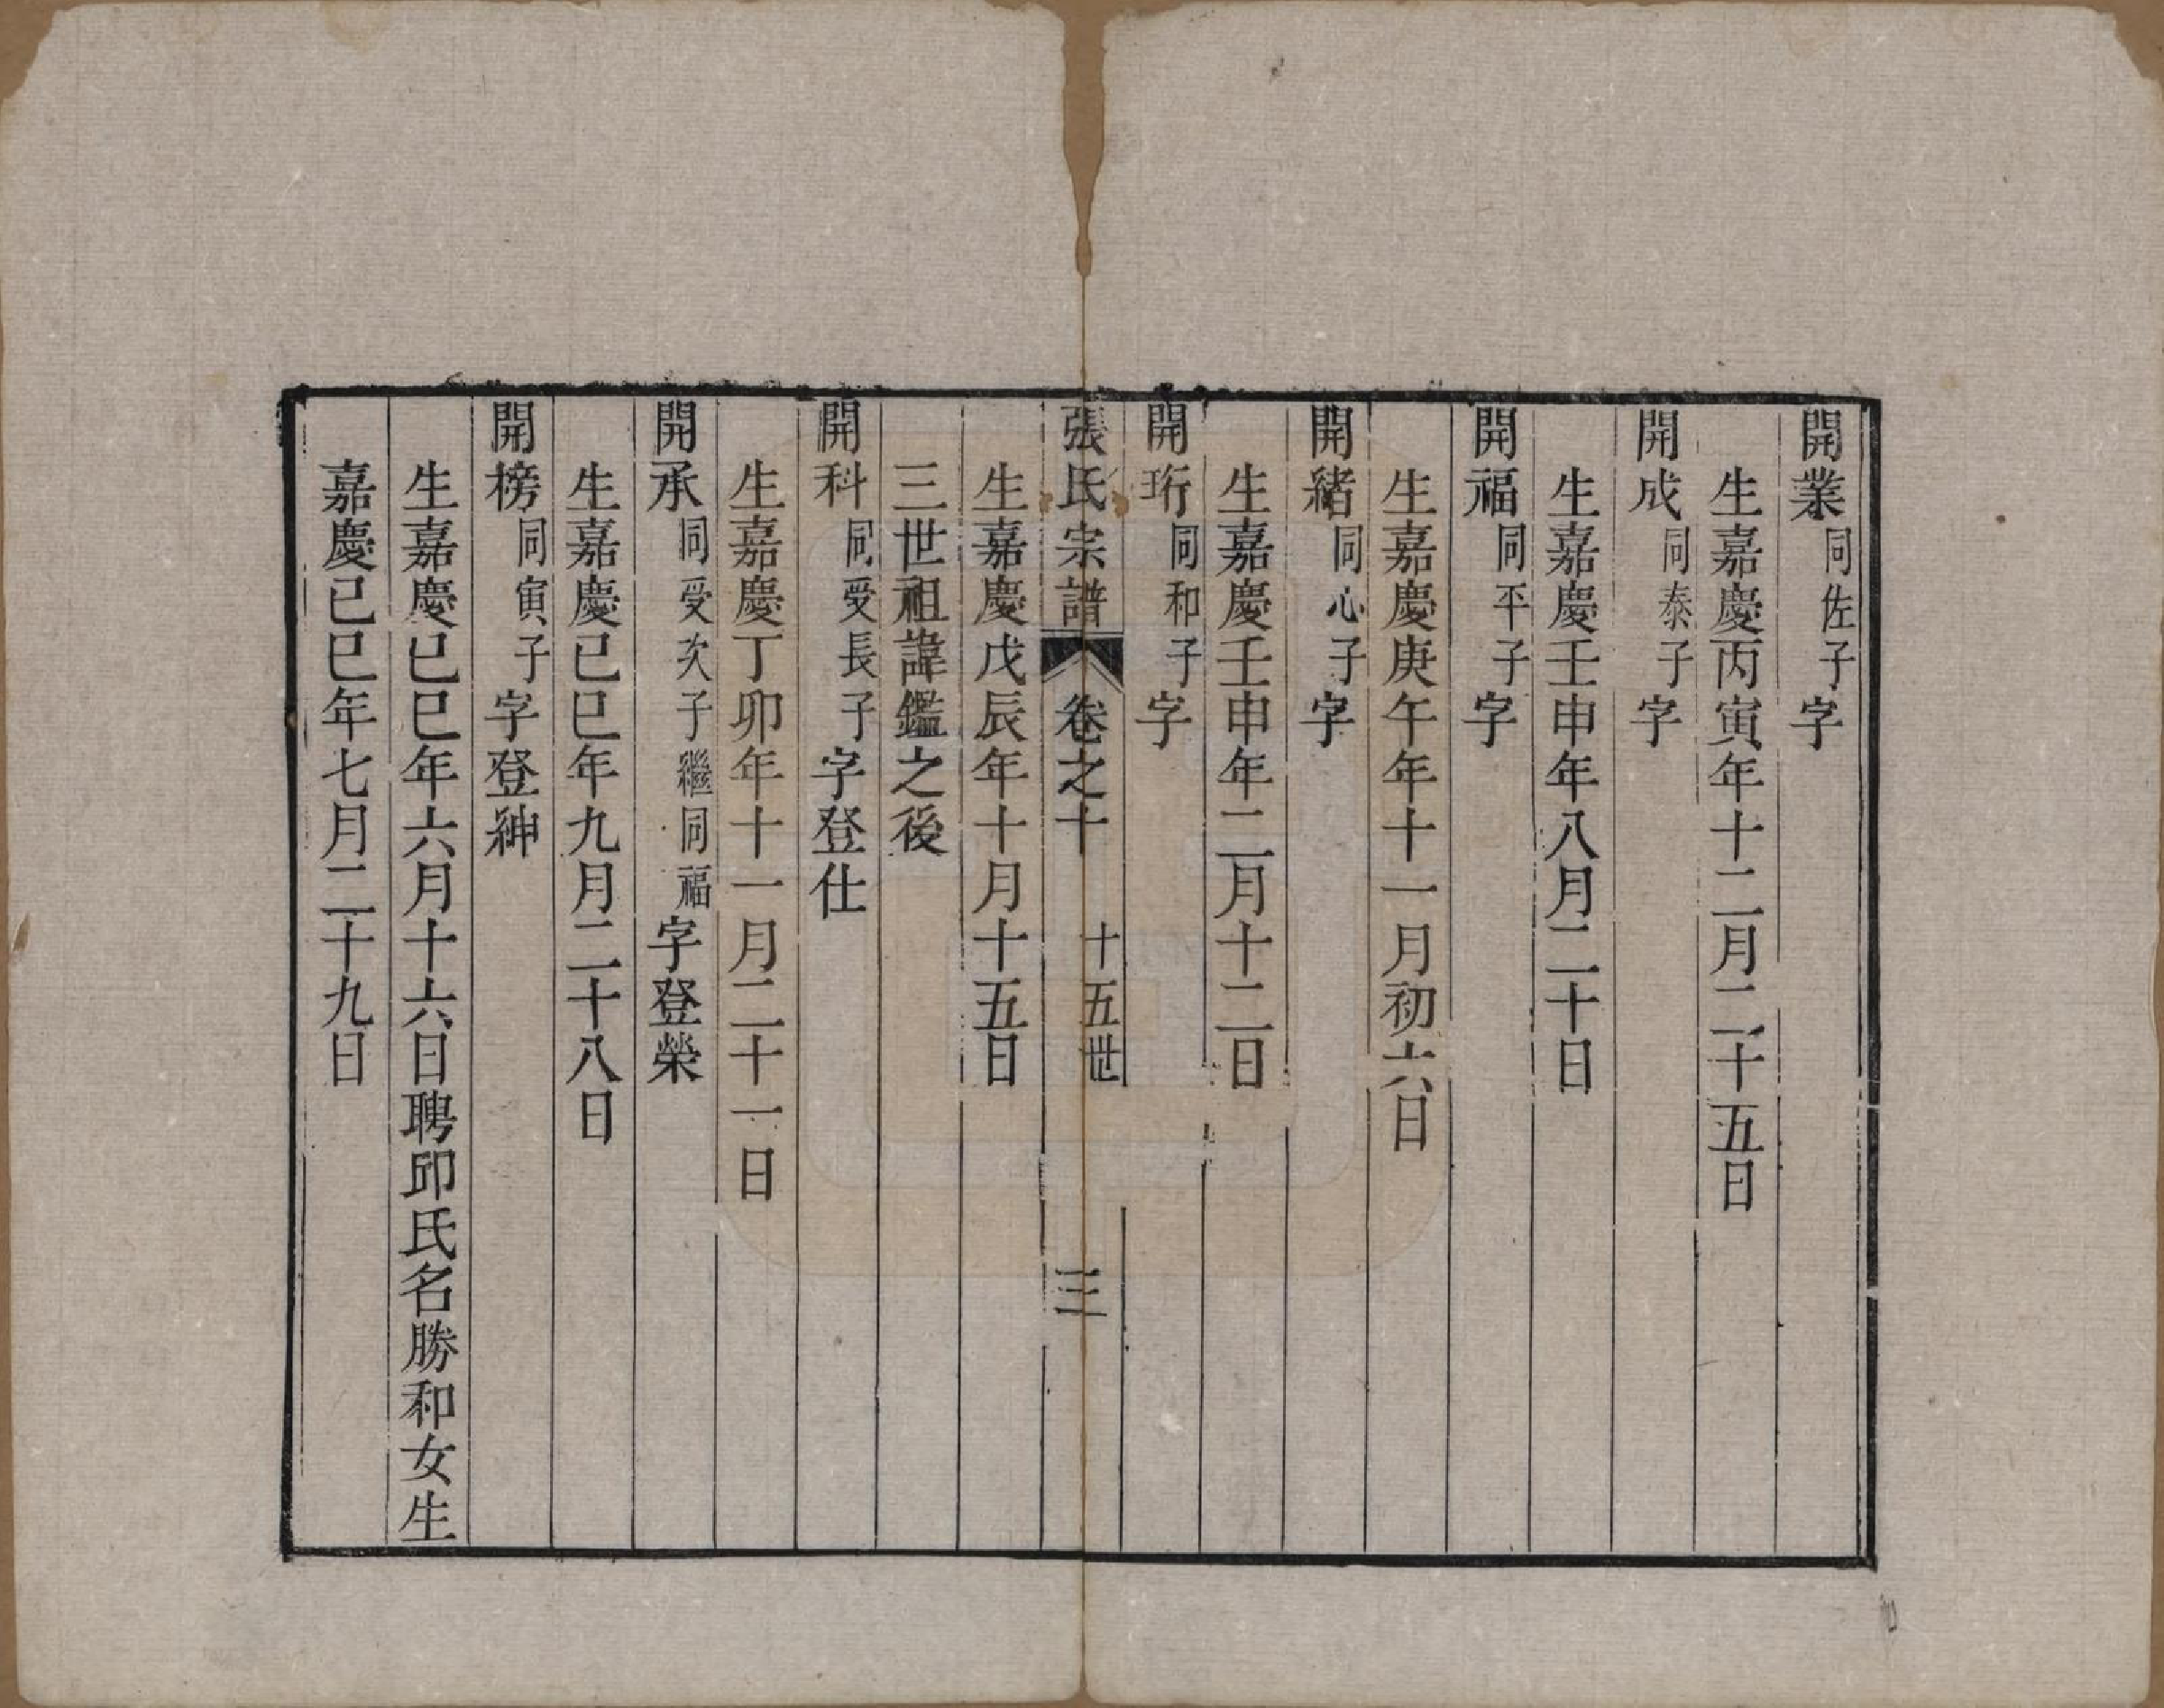 開業同佐子字
生嘉慶丙寅年十二月二十五日
開成同泰子字
生嘉慶壬申年八月二十日
開福同平子字
生嘉慶庚午年十一月初六日
開緒同心子字
生嘉慶壬申年二月十二日
開珩同和子字
張氏宗譜 卷之十 十五世 三
生嘉慶戊辰年十月十五日
三世祖諱鑑之後
開科同受長子字登仕
生嘉慶丁卯年十一月二十一日
開承同受次子繼同福字登榮
生嘉慶己巳年九月二十八日
開榜同寅子字登紳
生嘉慶己巳年六月十六日聘邱氏名勝和女生
嘉慶己巳年七月二十九日